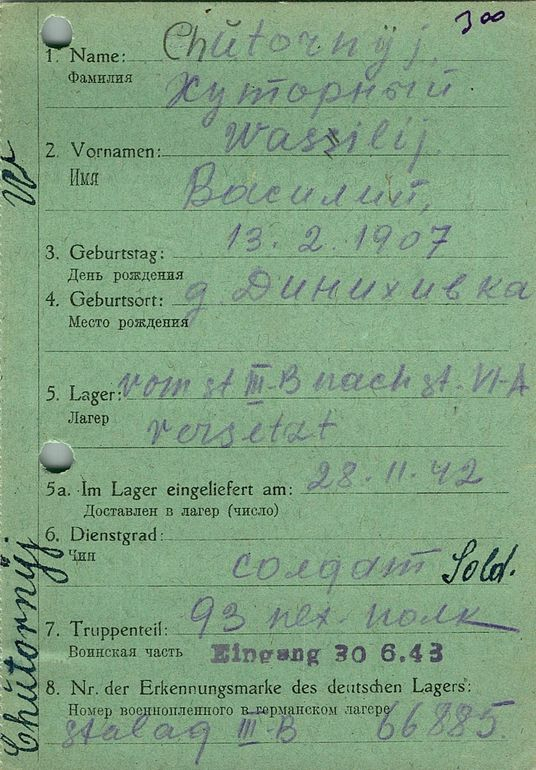 300
1. Name: Chŭtornÿj,
Фамилия
Хуторный
2. Vornamen: Wassilij
Имя
Василий,
3. Geburtstag: 13. 2. 1907
День рождения
4. Geburtsort: д. Динихивка
Место рождения
5. Lager: vom st III-B nach st. VI-A
Лагер
versetzt
5a. Im Lager eingeliefert am: 28. 11. 42
Доставлен в лагер (число)
6. Dienstgrad:
Чин
солдат Sold.
7. Truppenteil: 93 пех. полк
Воинская часть Eingang 30 6.43
8. Nr. der Erkennungsmarke des deutschen Lagers:
Номер военнопленного в германском лагере
stalag III-B 66885.
Chŭtornÿj